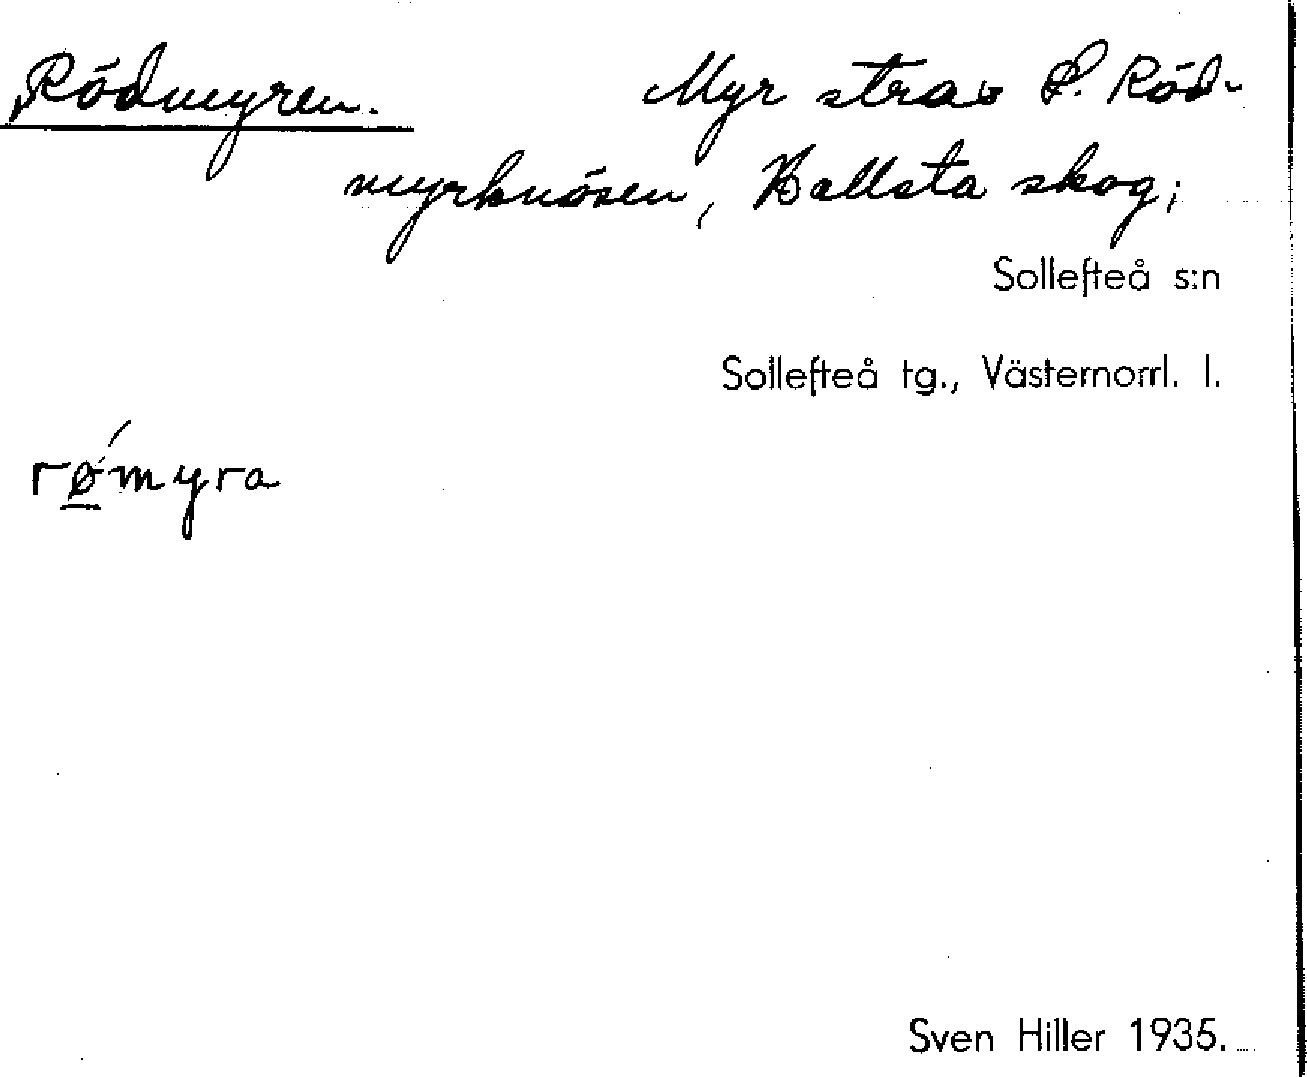 Rödmyren. Myr strax S. Röd-
myrknösen, Hallsta skog;
Sollefteå s:n
Sollefteå tg., Västernorrl. l.
rǿ̱myra
Sven Hiller 1935.